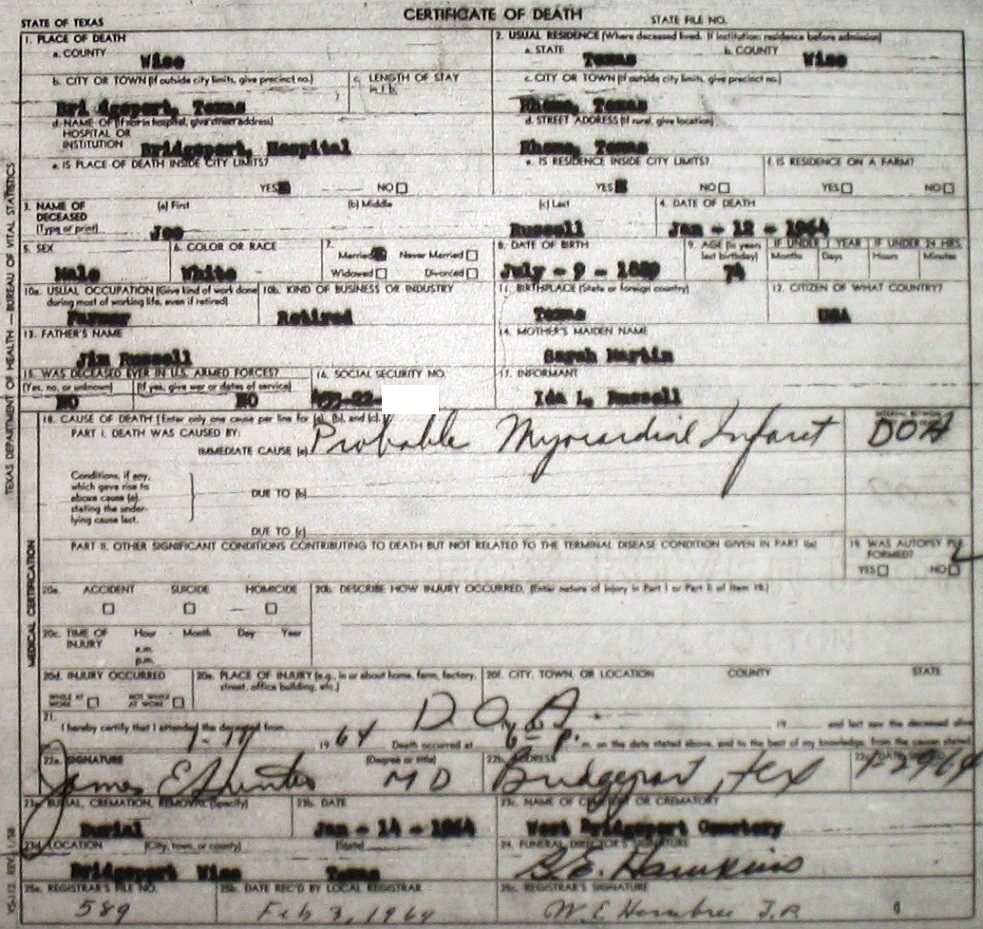 CERTIFICATE OF DEATH
STATE OF TEXAS STATE FILE NO.
1. PLACE OF DEATH 2. USUAL RESIDENCE (Where deceased lived. If institution: residence before admission)
a. COUNTY Wise a. STATE Texas b. COUNTY Wise
b. CITY OR TOWN (If outside city limits, give precinct no.) c. LENGTH OF STAY in 1 b. c. CITY OR TOWN (If outside city limits, give precinct no.)
Bri dgeport, Texas Rhome, Texas
d. NAME OF (If not in hospital, give street address) d. STREET ADDRESS (If rural, give location)
HOSPITAL OR
INSTITUTION Bridgeport, Hospital Rhome, Texas
e. IS PLACE OF DEATH INSIDE CITY LIMITS? e. IS RESIDENCE INSIDE CITY LIMITS? f. IS RESIDENCE ON A FARM?
YES NO YES NO YES NO
3. NAME OF DECEASED (Type or print) (a) First (b) Middle (c) Last 4. DATE OF DEATH
Joe Russell Jan - 12 - 1964
5. SEX 6. COLOR OR RACE 7. Married Never Married 8. DATE OF BIRTH 9. AGE (In years last birthday) IF UNDER 1 YEAR IF UNDER 24 HRS.
Months Days Hours Minutes
Male White Widowed Divorced July - 9 - 1889 74
10a. USUAL OCCUPATION (Give kind of work done during most of working life, even if retired) 10b. KIND OF BUSINESS OR INDUSTRY 11. BIRTHPLACE (State or foreign country) 12. CITIZEN OF WHAT COUNTRY?
Farmer Retired Texas USA
13. FATHER'S NAME 14. MOTHER'S MAIDEN NAME
Jim Russell Sarah Martin
15. WAS DECEASED EVER IN U.S. ARMED FORCES? 16. SOCIAL SECURITY NO. 17. INFORMANT
(Yes, no, or unknown) (If yes, give war or dates of service)
NO NO Ida L, Russell
18. CAUSE OF DEATH [Enter only one cause per line for (a), (b), and (c).]
PART I. DEATH WAS CAUSED BY:
IMMEDIATE CAUSE (a) Probable Myocardial Infarct DOA
Conditions, if any, which gave rise to above cause (a), stating the underlying cause last.
DUE TO (b)
DUE TO (c)
PART II. OTHER SIGNIFICANT CONDITIONS CONTRIBUTING TO DEATH BUT NOT RELATED TO THE TERMINAL DISEASE CONDITION GIVEN IN PART I(a) 19. WAS AUTOPSY PERFORMED?
YES NO
20a. ACCIDENT SUICIDE HOMICIDE 20b. DESCRIBE HOW INJURY OCCURRED. (Enter nature of injury in Part I or Part II of item 18.)
20c. TIME OF INJURY Hour Month Day Year
a.m.
p.m.
20d. INJURY OCCURRED 20e. PLACE OF INJURY (e.g., in or about home, farm, factory, street, office building, etc.) 20f. CITY, TOWN, OR LOCATION COUNTY STATE
WHILE AT WORK NOT WHILE AT WORK
21. I hereby certify that I attended the deceased from D.O.A. 19 and last saw the deceased alive
1964 Death occurred at 6 P. m. on the date stated above, and to the best of my knowledge, from the causes stated
22a. SIGNATURE (Degree or title) 22b. ADDRESS 22c. DATE
James E Hunter MD Bridgeport, Tex 1-29-64
23a. BURIAL, CREMATION, REMOVAL (Specify) 23b. DATE 23c. NAME OF CEMETERY OR CREMATORY
Burial Jan - 14 - 1964 West Bridgeport Cemetery
23d. LOCATION (City, town, or county) (State) 24. FUNERAL DIRECTOR'S SIGNATURE
Bridgeport Wise Texas Hawkins
25a. REGISTRAR'S FILE NO. 25b. DATE REC'D BY LOCAL REGISTRAR 25c. REGISTRAR'S SIGNATURE
589 Feb 3, 1964 W. E. Hembree J.P.
TEXAS DEPARTMENT OF HEALTH — BUREAU OF VITAL STATISTICS
MEDICAL CERTIFICATION
VS-112 REV. 1/58